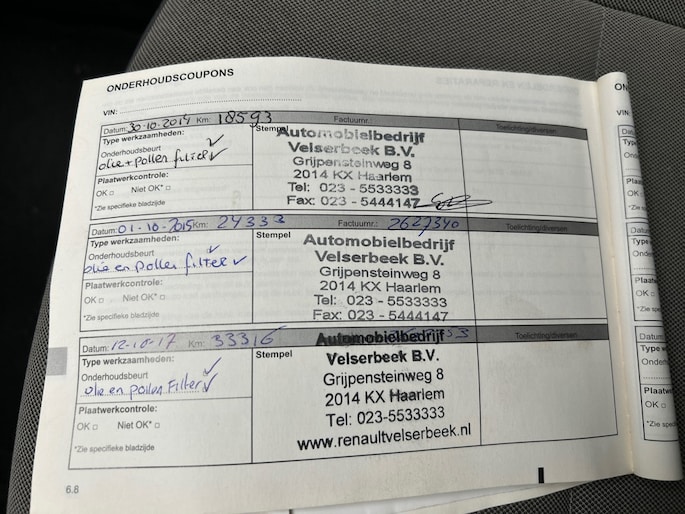 ONDERHOUDSCOUPONS
VIN:
VIN:
Datum: 30-10-2014 Km: 18593 Factuurnr.: Toelichting/diversen
Type werkzaamheden: Stempel
Onderhoudsbeurt ✓
olie + pollen filter ✓
Plaatwerkcontrole:
OK □ Niet OK* □
*Zie specifieke bladzijde
Automobielbedrijf
Velserbeek B.V.
Grijpensteinweg 8
2014 KX Haarlem
Tel: 023 - 5533333
Fax: 023 - 5444147
Datum: 01-10-2015 Km: 24333 Factuurnr.: 2627340 Toelichting/diversen
Type werkzaamheden: Stempel
Onderhoudsbeurt ✓
olie en pollen filter ✓
Plaatwerkcontrole:
OK □ Niet OK* □
*Zie specifieke bladzijde
Automobielbedrijf
Velserbeek B.V.
Grijpensteinweg 8
2014 KX Haarlem
Tel: 023 - 5533333
Fax: 023 - 5444147
Datum: 12-10-17 Km: 33316 Toelichting/diversen
Type werkzaamheden: Stempel
Onderhoudsbeurt ✓
olie en pollen Filter ✓
Plaatwerkcontrole:
OK □ Niet OK* □
*Zie specifieke bladzijde
Automobielbedrijf
Velserbeek B.V.
Grijpensteinweg 8
2014 KX Haarlem
Tel: 023-5533333
www.renaultvelserbeek.nl
6.8